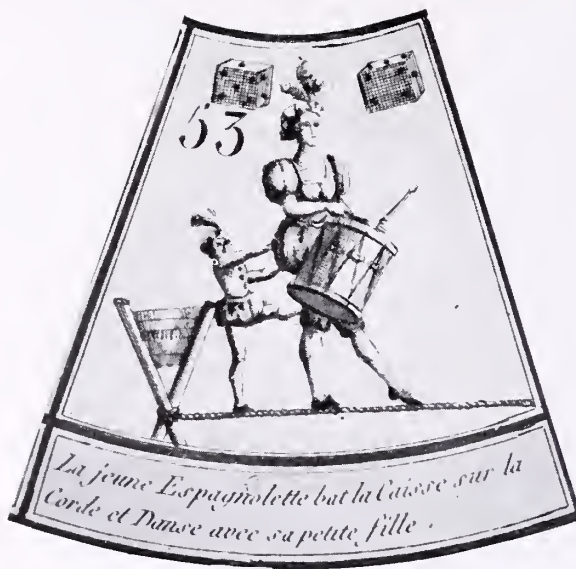 53
La jeune Espagnolette bat la Caisse sur la
Corde et Danse avec sa petite fille.